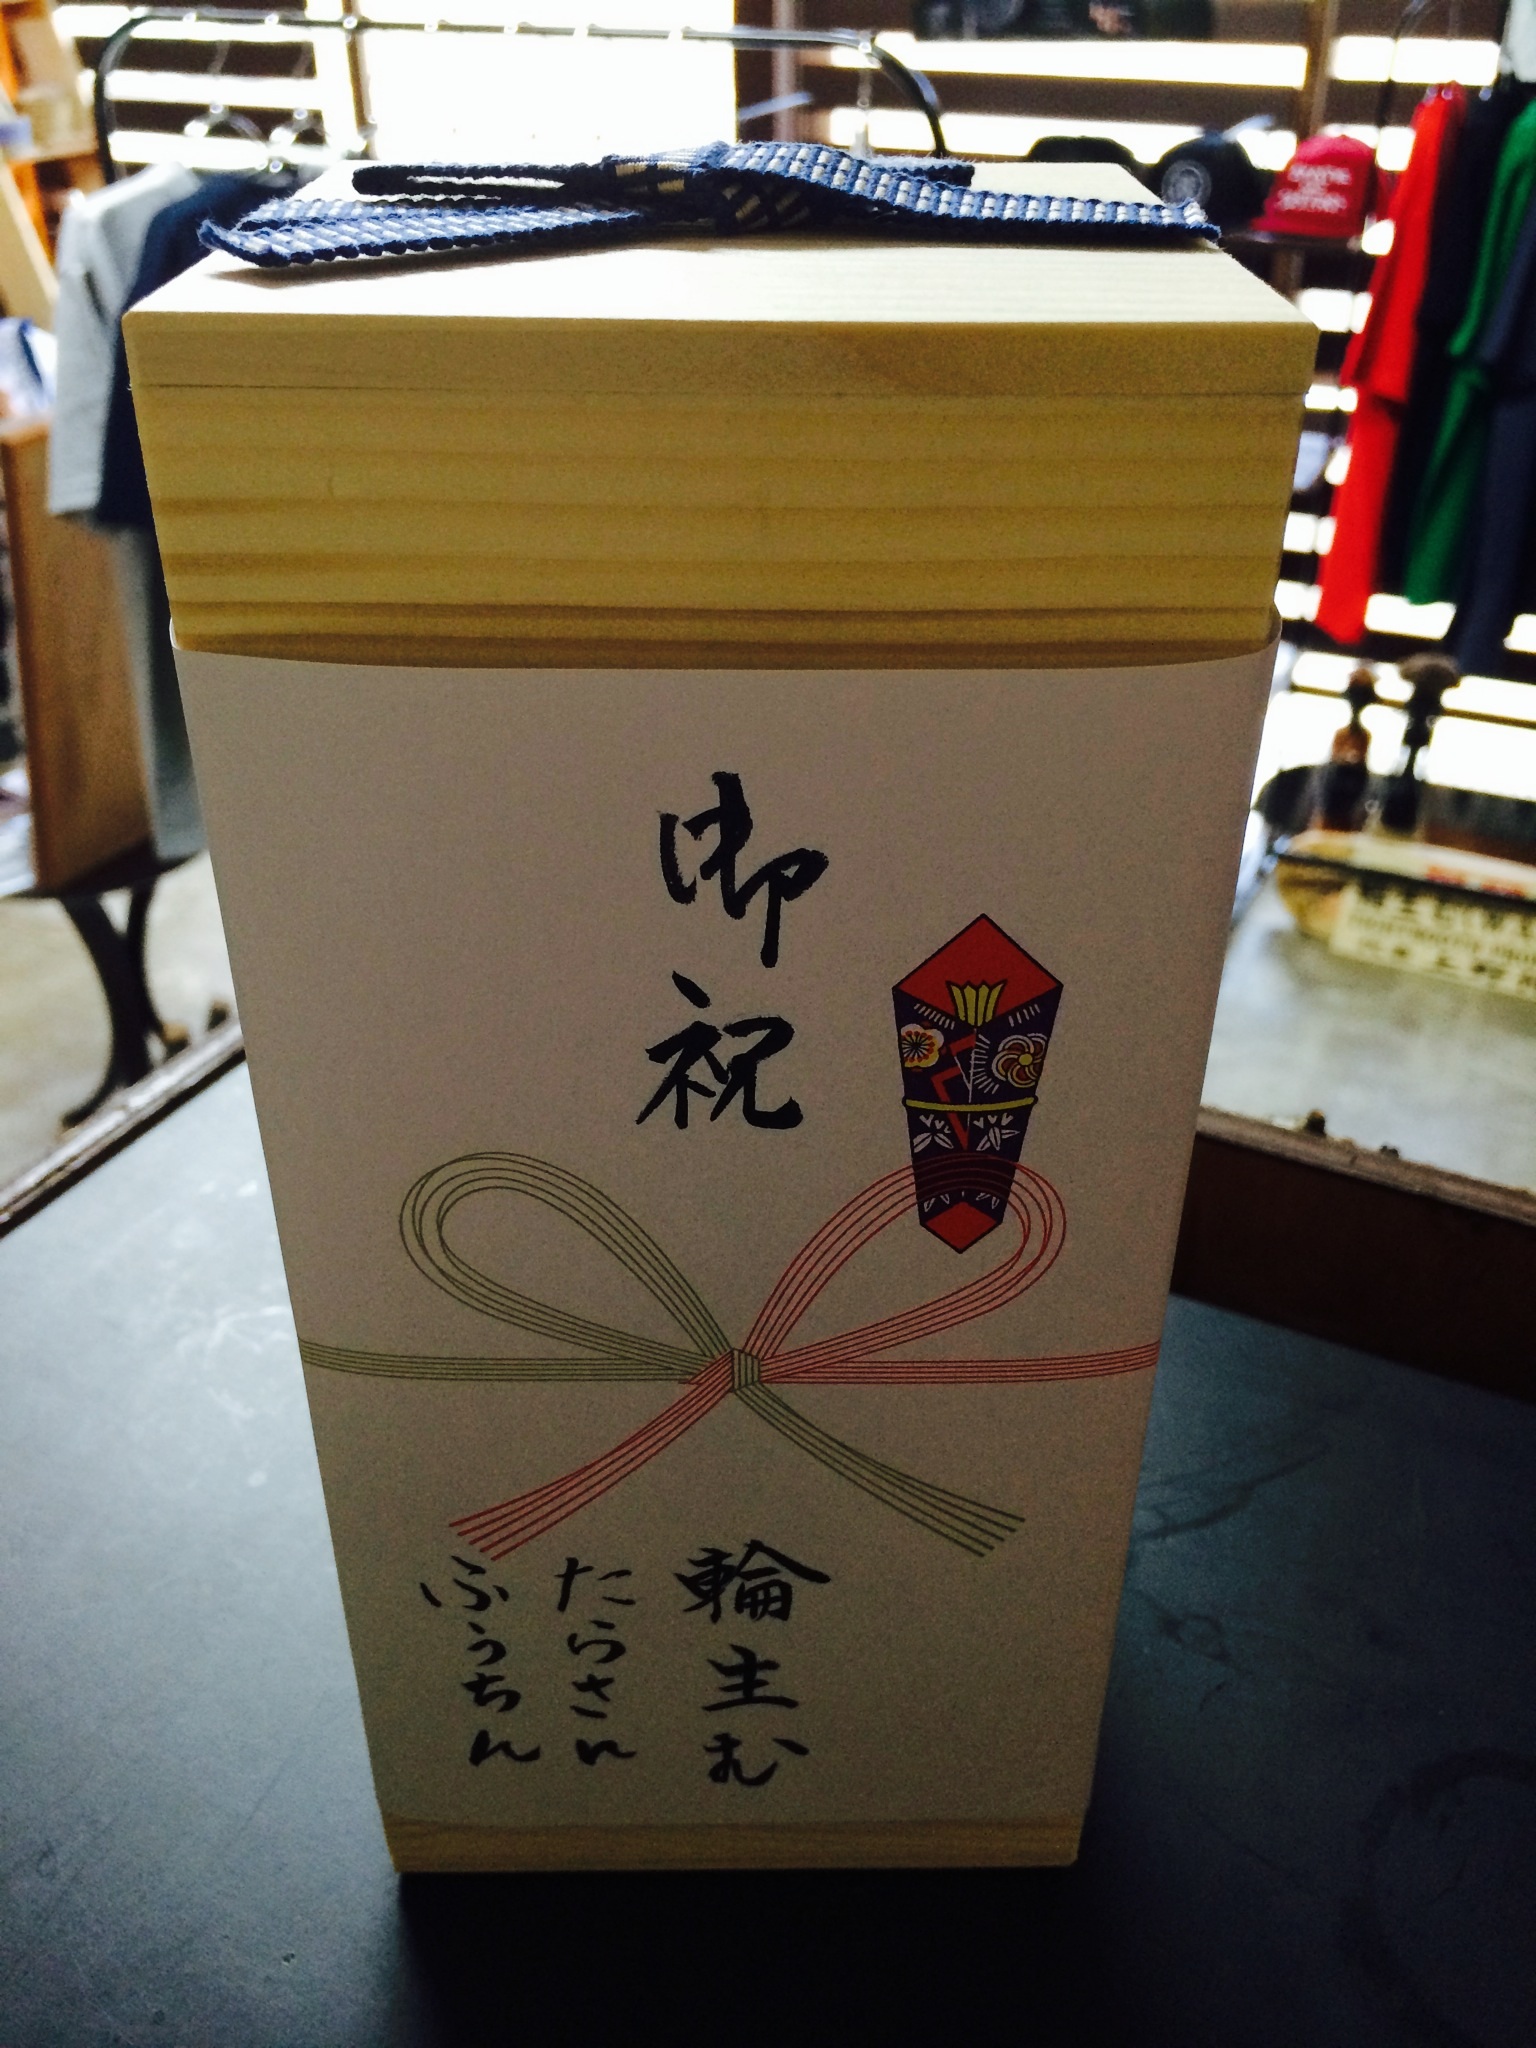 御祝
輪主む
たらさん
ふぅちん